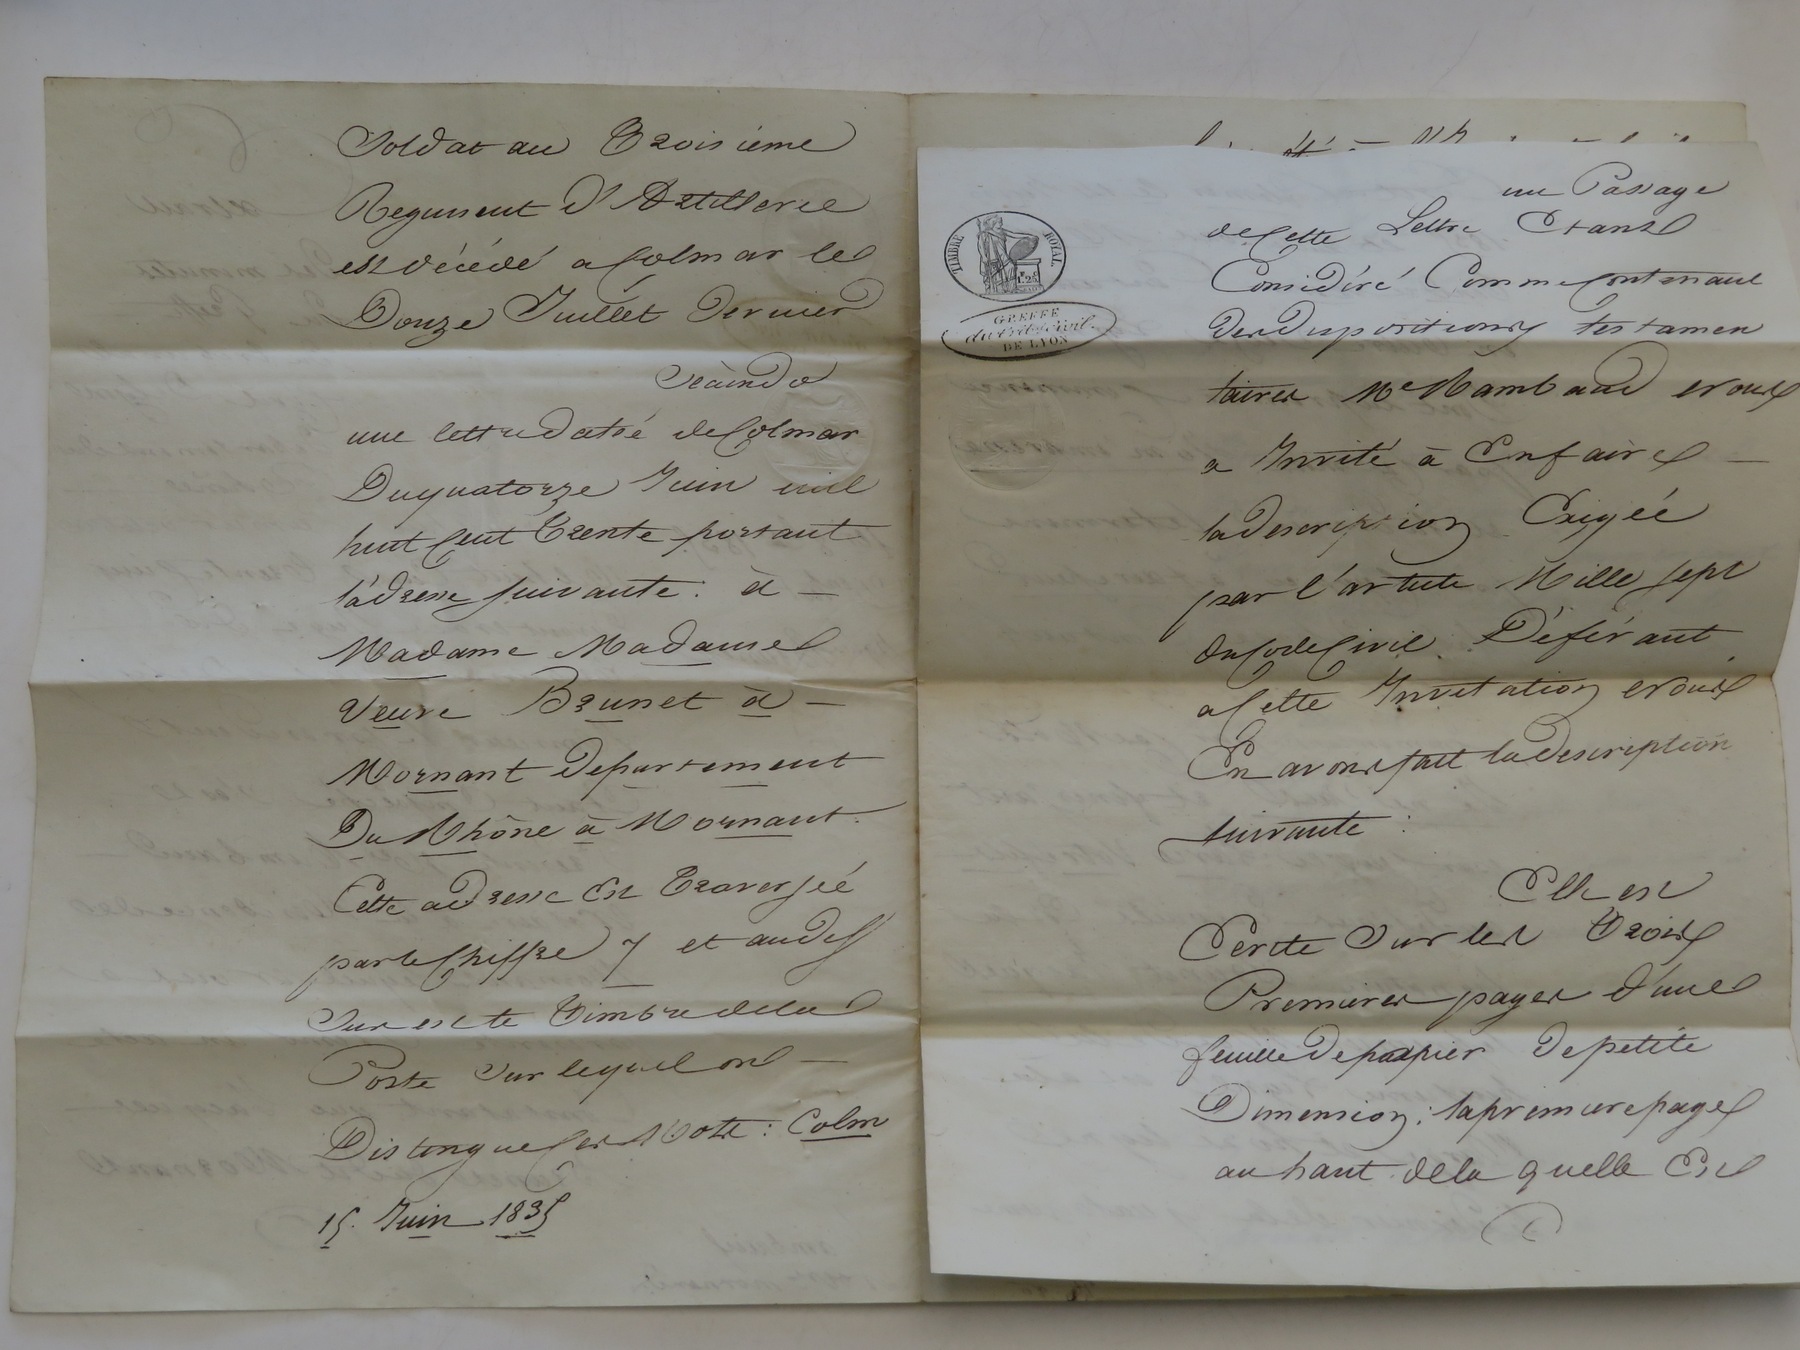 Soldat au Troisième
Regiment d'Artillerie
est décédé a Colmar le
Douze Juillet Dernier
une lettre datée de Colmar
Du quatorze Juin mil
huit Cent Trente portant
l'adresse suivante : à —
Madame Madame
Veuve Brunet à —
Mornant Departement
Du Rhône à Mornant.
Cette adresse Est Traversée
par le Chiffre 7 et au dess
Sur est le Timbre de la
Poste Sur lequel on —
Distingue Ces Mots : Colm
15. Juin 1835
TIMBRE ROYAL
1.25
GREFFE
du trib. civil.
DE LYON
un Passage
de Cette Lettre Etant
Considéré Comme Contenant
Des Dispositions testamen
taires Me Rambaud nous
a Invité à En faire —
la Description Exigée
par l'article Mille sept
du Code Civil. Déférant
a Cette Invitation nous
En avons fait la Description
suivante :
Elle est
Ecrite Sur les Trois
Premieres pages d'une
feuille De papier De petite
Dimension ; la premiere page
au haut de la quelle Est